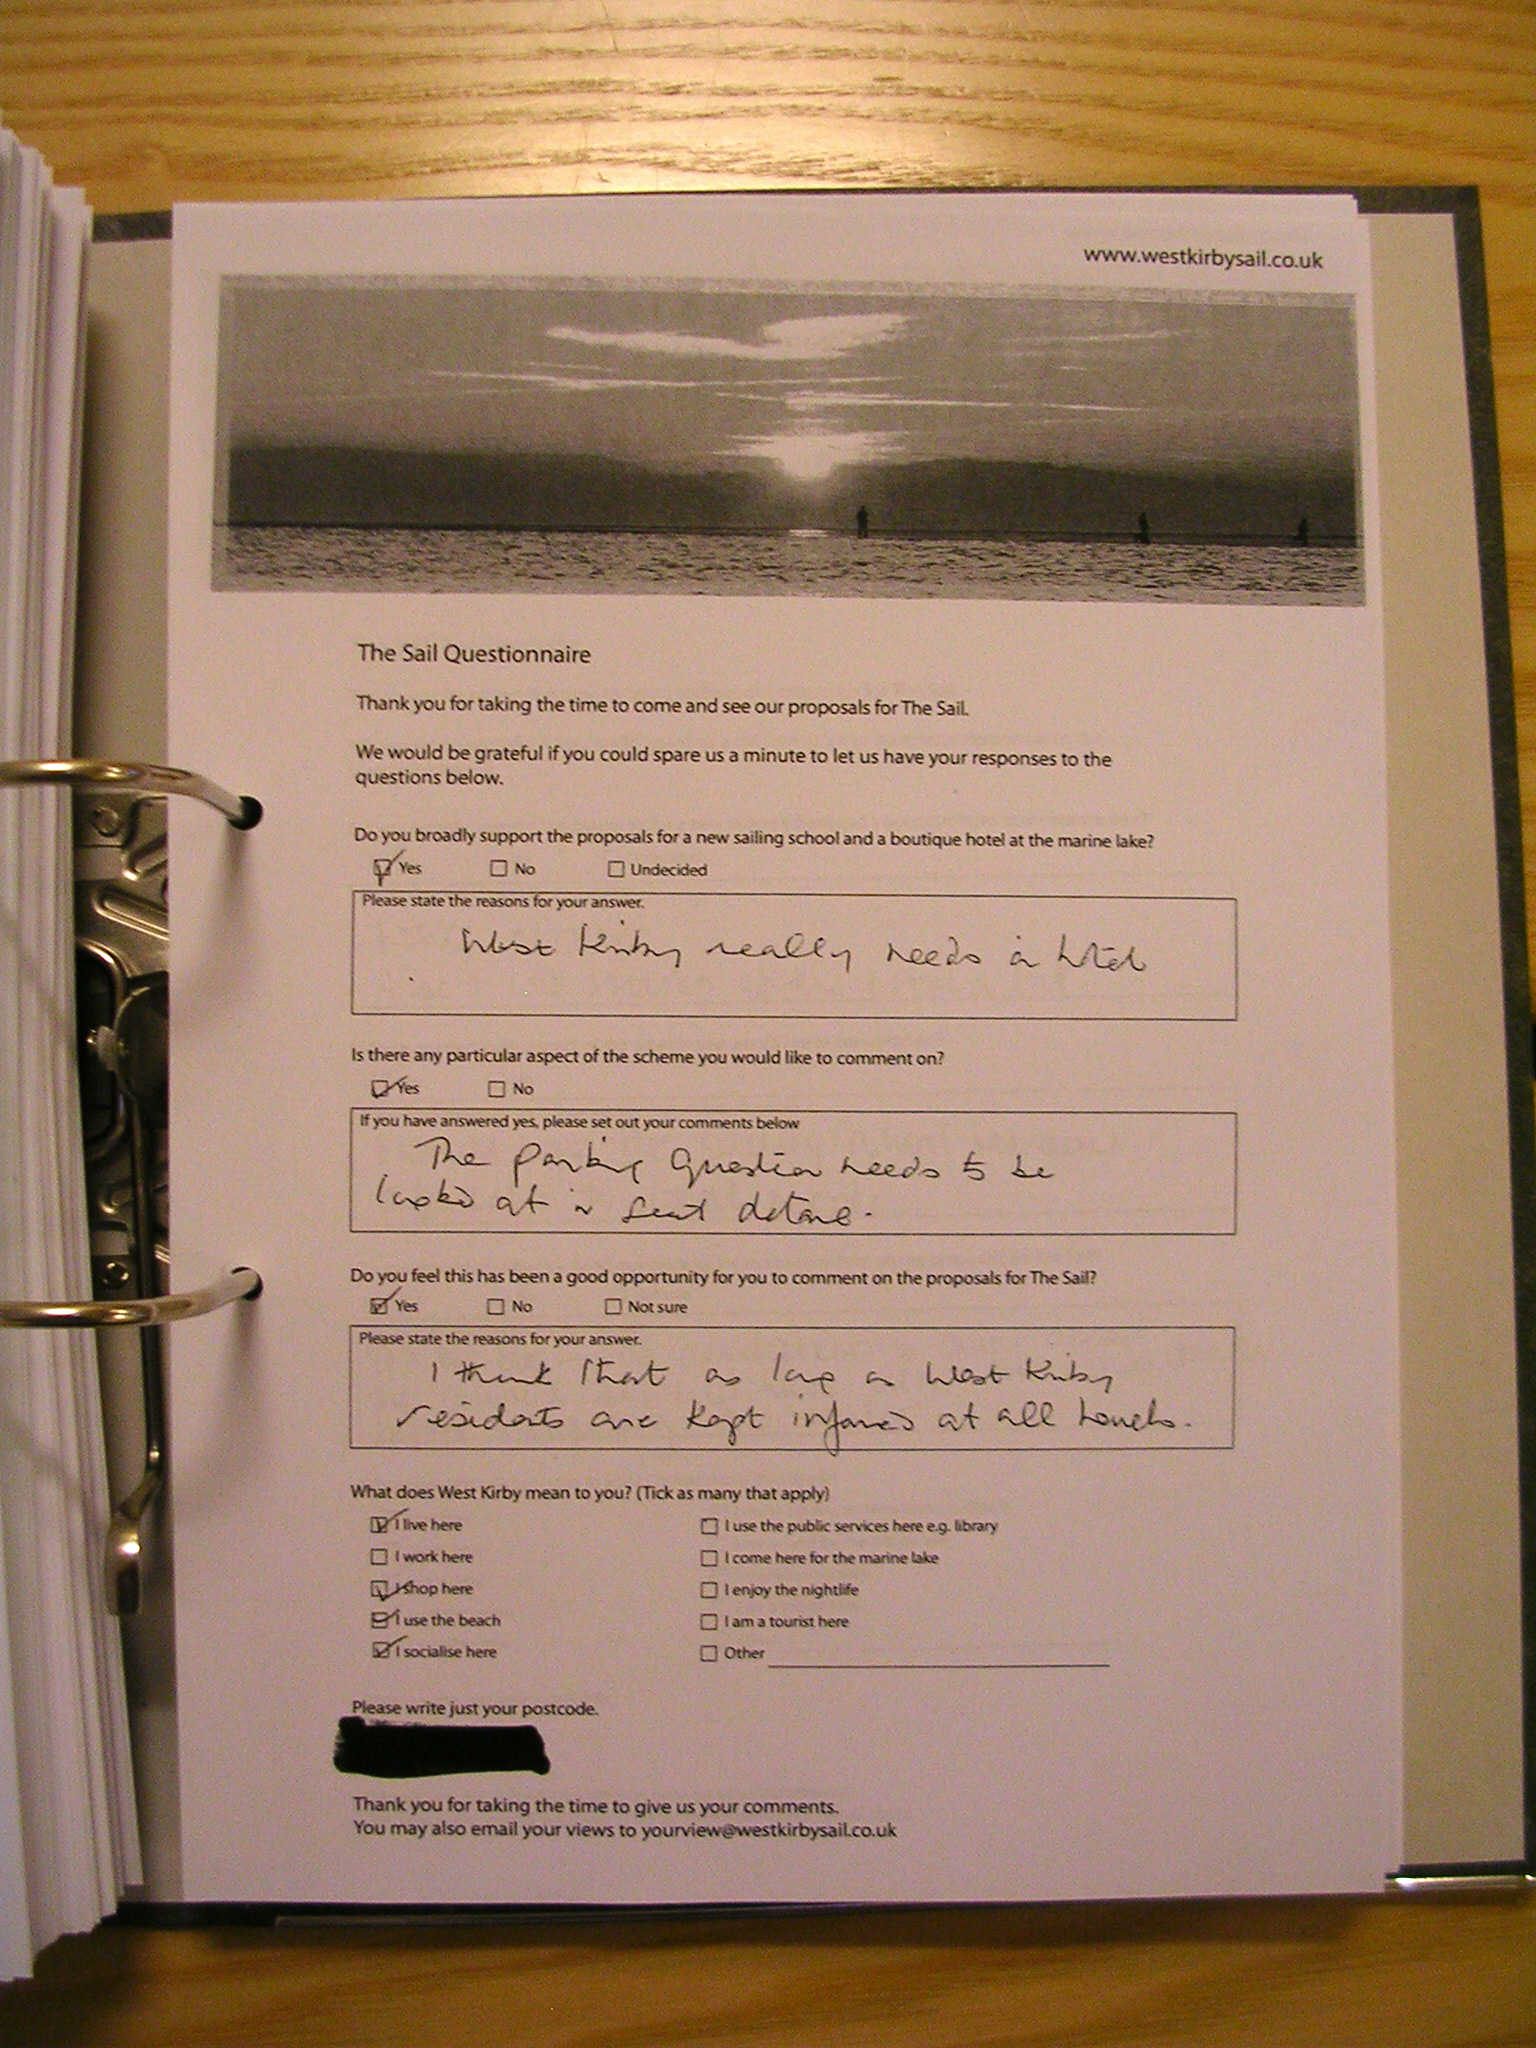 www.westkirbysail.co.uk
The Sail Questionnaire
Thank you for taking the time to come and see our proposals for The Sail.
We would be grateful if you could spare us a minute to let us have your responses to the
questions below.
Do you broadly support the proposals for a new sailing school and a boutique hotel at the marine lake?
Yes No Undecided
Please state the reasons for your answer.
West Kirby really needs a hotel
Is there any particular aspect of the scheme you would like to comment on?
Yes No
If you have answered yes, please set out your comments below
The parking question needs to be
looked at in great detail.
Do you feel this has been a good opportunity for you to comment on the proposals for The Sail?
Yes No Not sure
Please state the reasons for your answer.
I think that as long as West Kirby
residents are kept informed at all
What does West Kirby mean to you? (Tick as many that apply)
I live here
I work here
I shop here
I use the beach
I socialise here
I use the public services here e.g. library
I come here for the marine lake
I enjoy the nightlife
I am a tourist here
Other
Please write just your postcode.
Thank you for taking the time to give us your comments.
You may also email your views to yourview@westkirbysail.co.uk